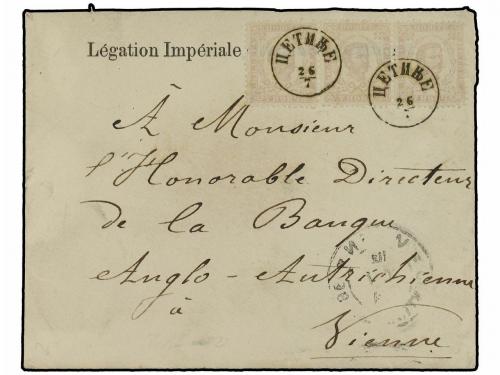 Légation Impériale
ЦЕТИЊЕ
26
7
ЦЕТИЊЕ
26
7
À Monsieur
l'Honorable Directeur
de la Banque
Anglo-Autrichienne
à
Vienne